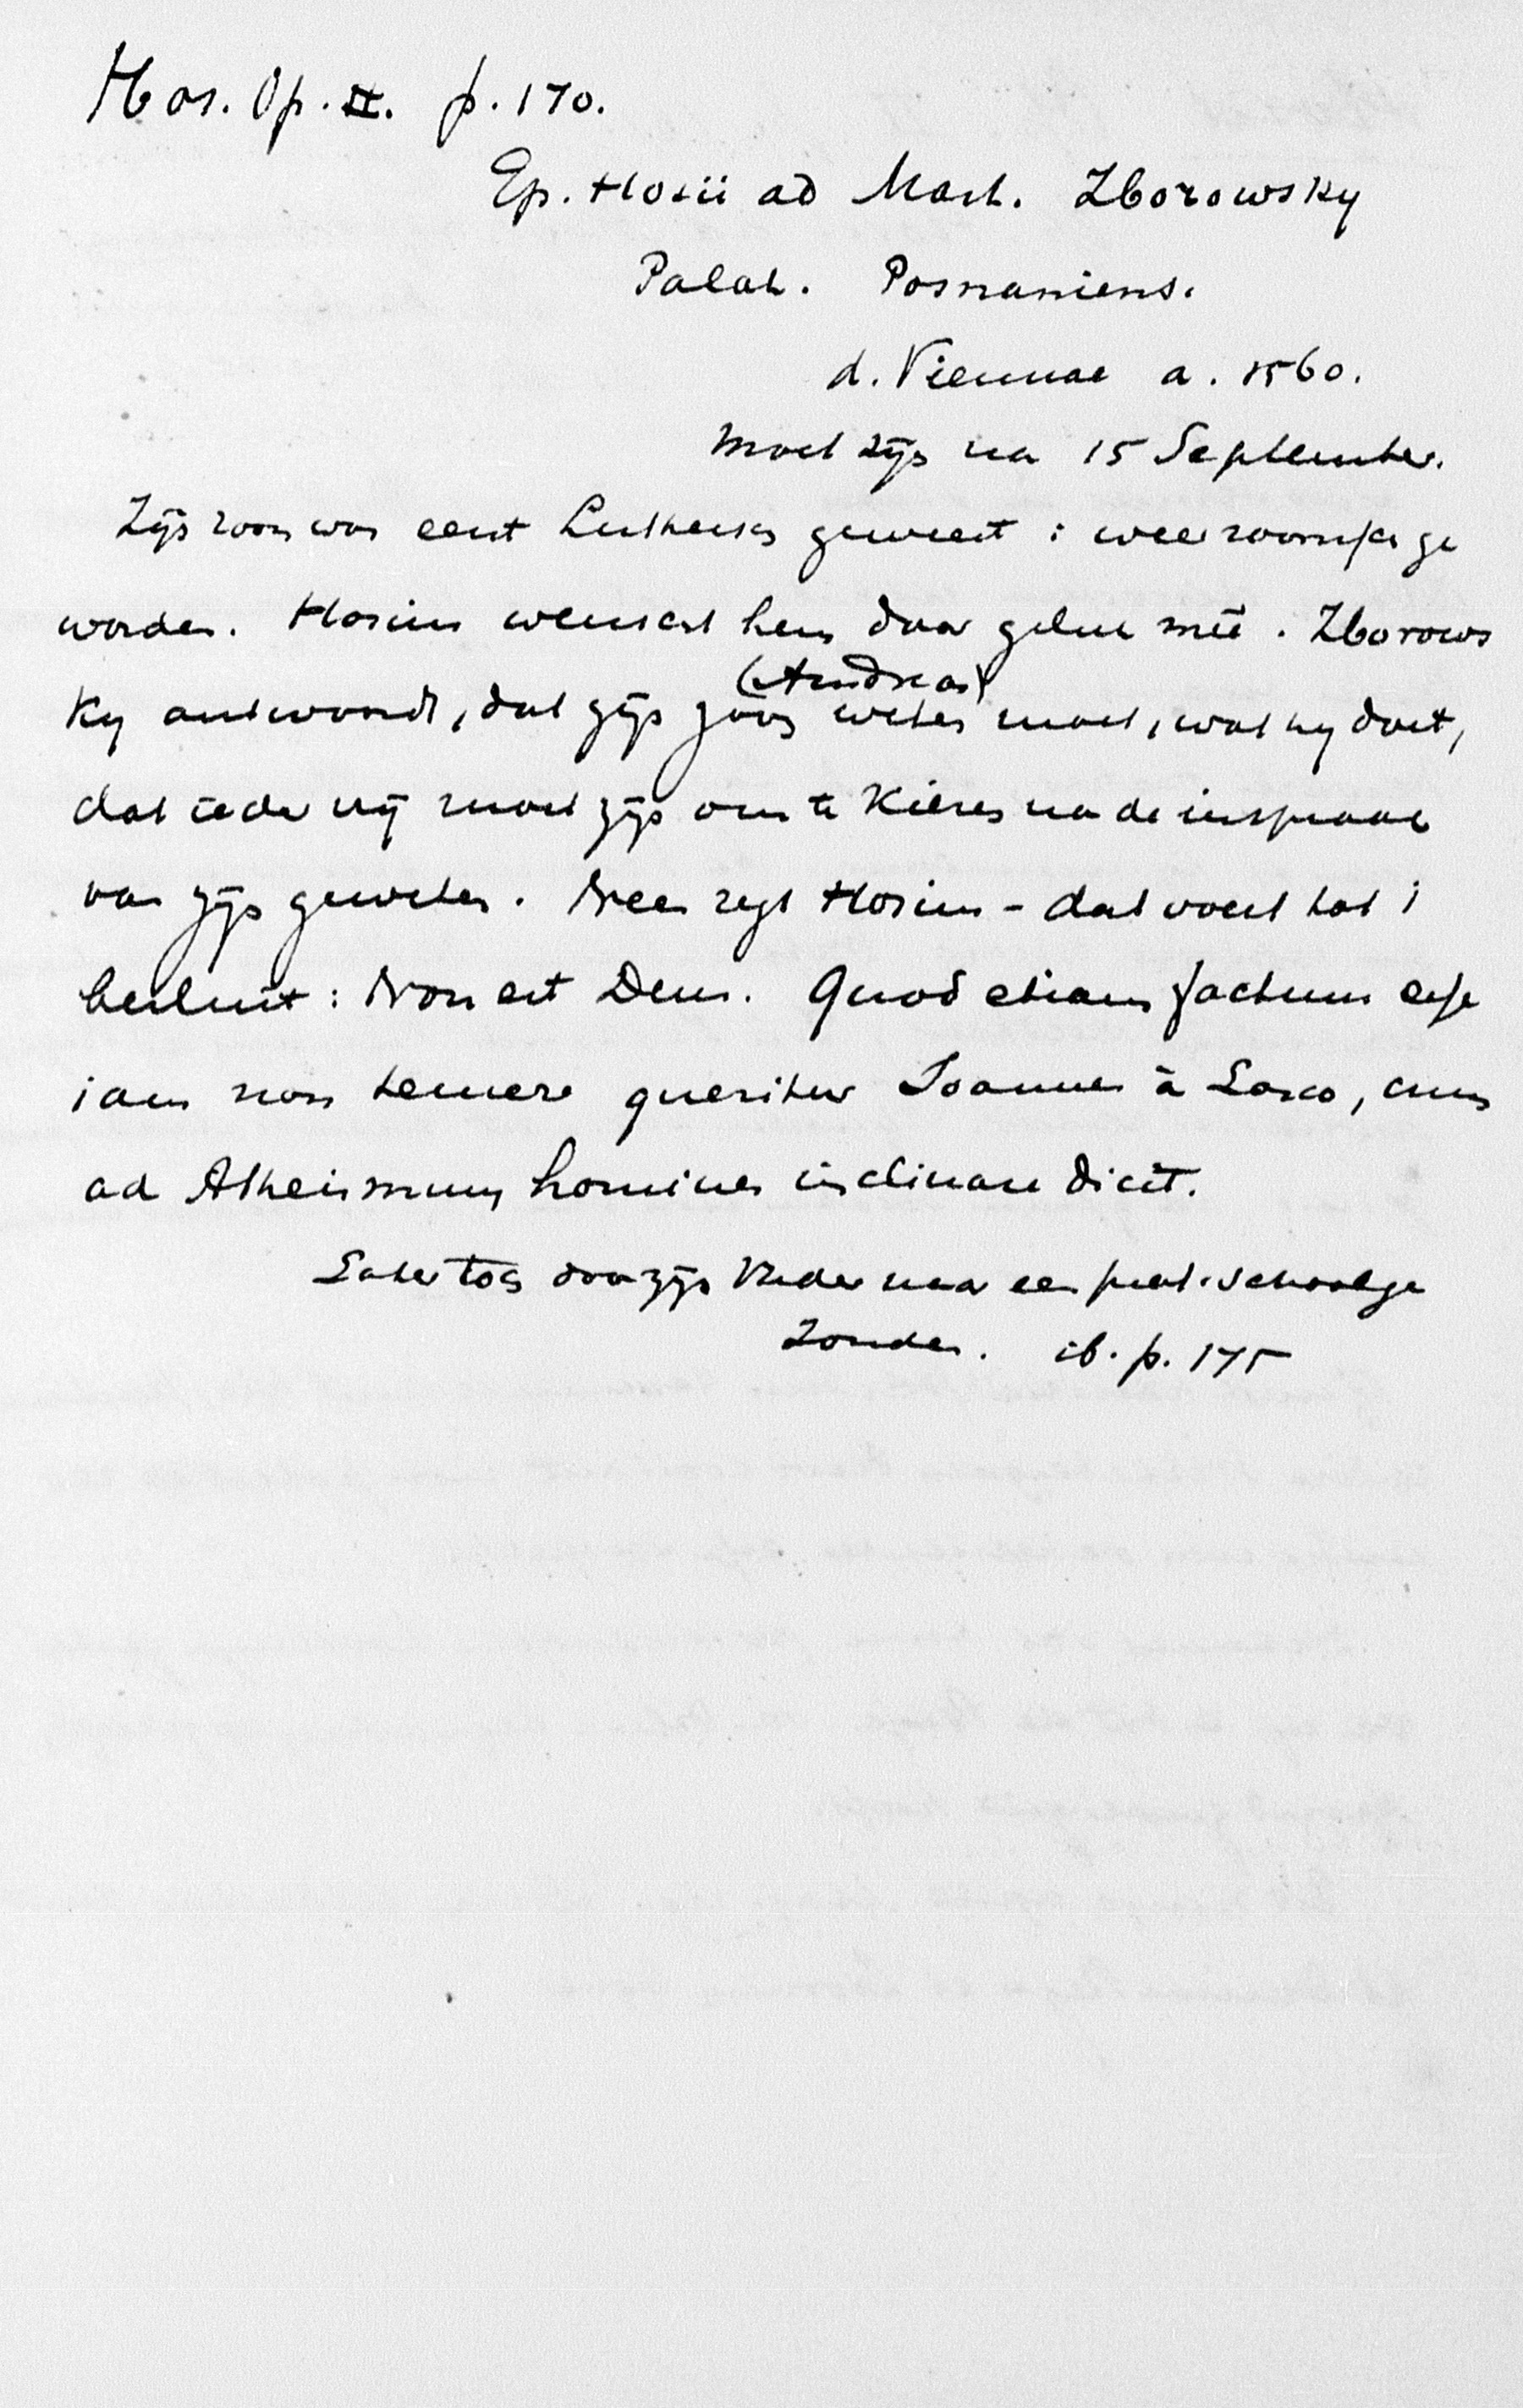 Hos. Op. II. p. 170.
Ep. Hosii ad Mart. Zborowsky
Palat. Posnaniens.
d. Viennae a. 1560.
Moet zijn na 15 September.
Zijn zoon was eerst Luthersch geweest : weer roomsch ge
worden. Hosius wenscht hem daar geluk meê. Zborows
(Andreas)
ky antwoordt, dat zijn zoon weten moet, wat hij doet,
dat ieder vrij moet zijn om te kiezen na de inspraak
van zijn geweten. Neen zegt Hosius - dat voert tot 't
besluit : Non est Deus. Quod etiam factum esse
iam non temere queritur Joannes à Lasco, cum
ad Atheismum homines inclinare dicit.
Later toch door zijn Vader naar een prot. school ge
zonden. ib. p. 175